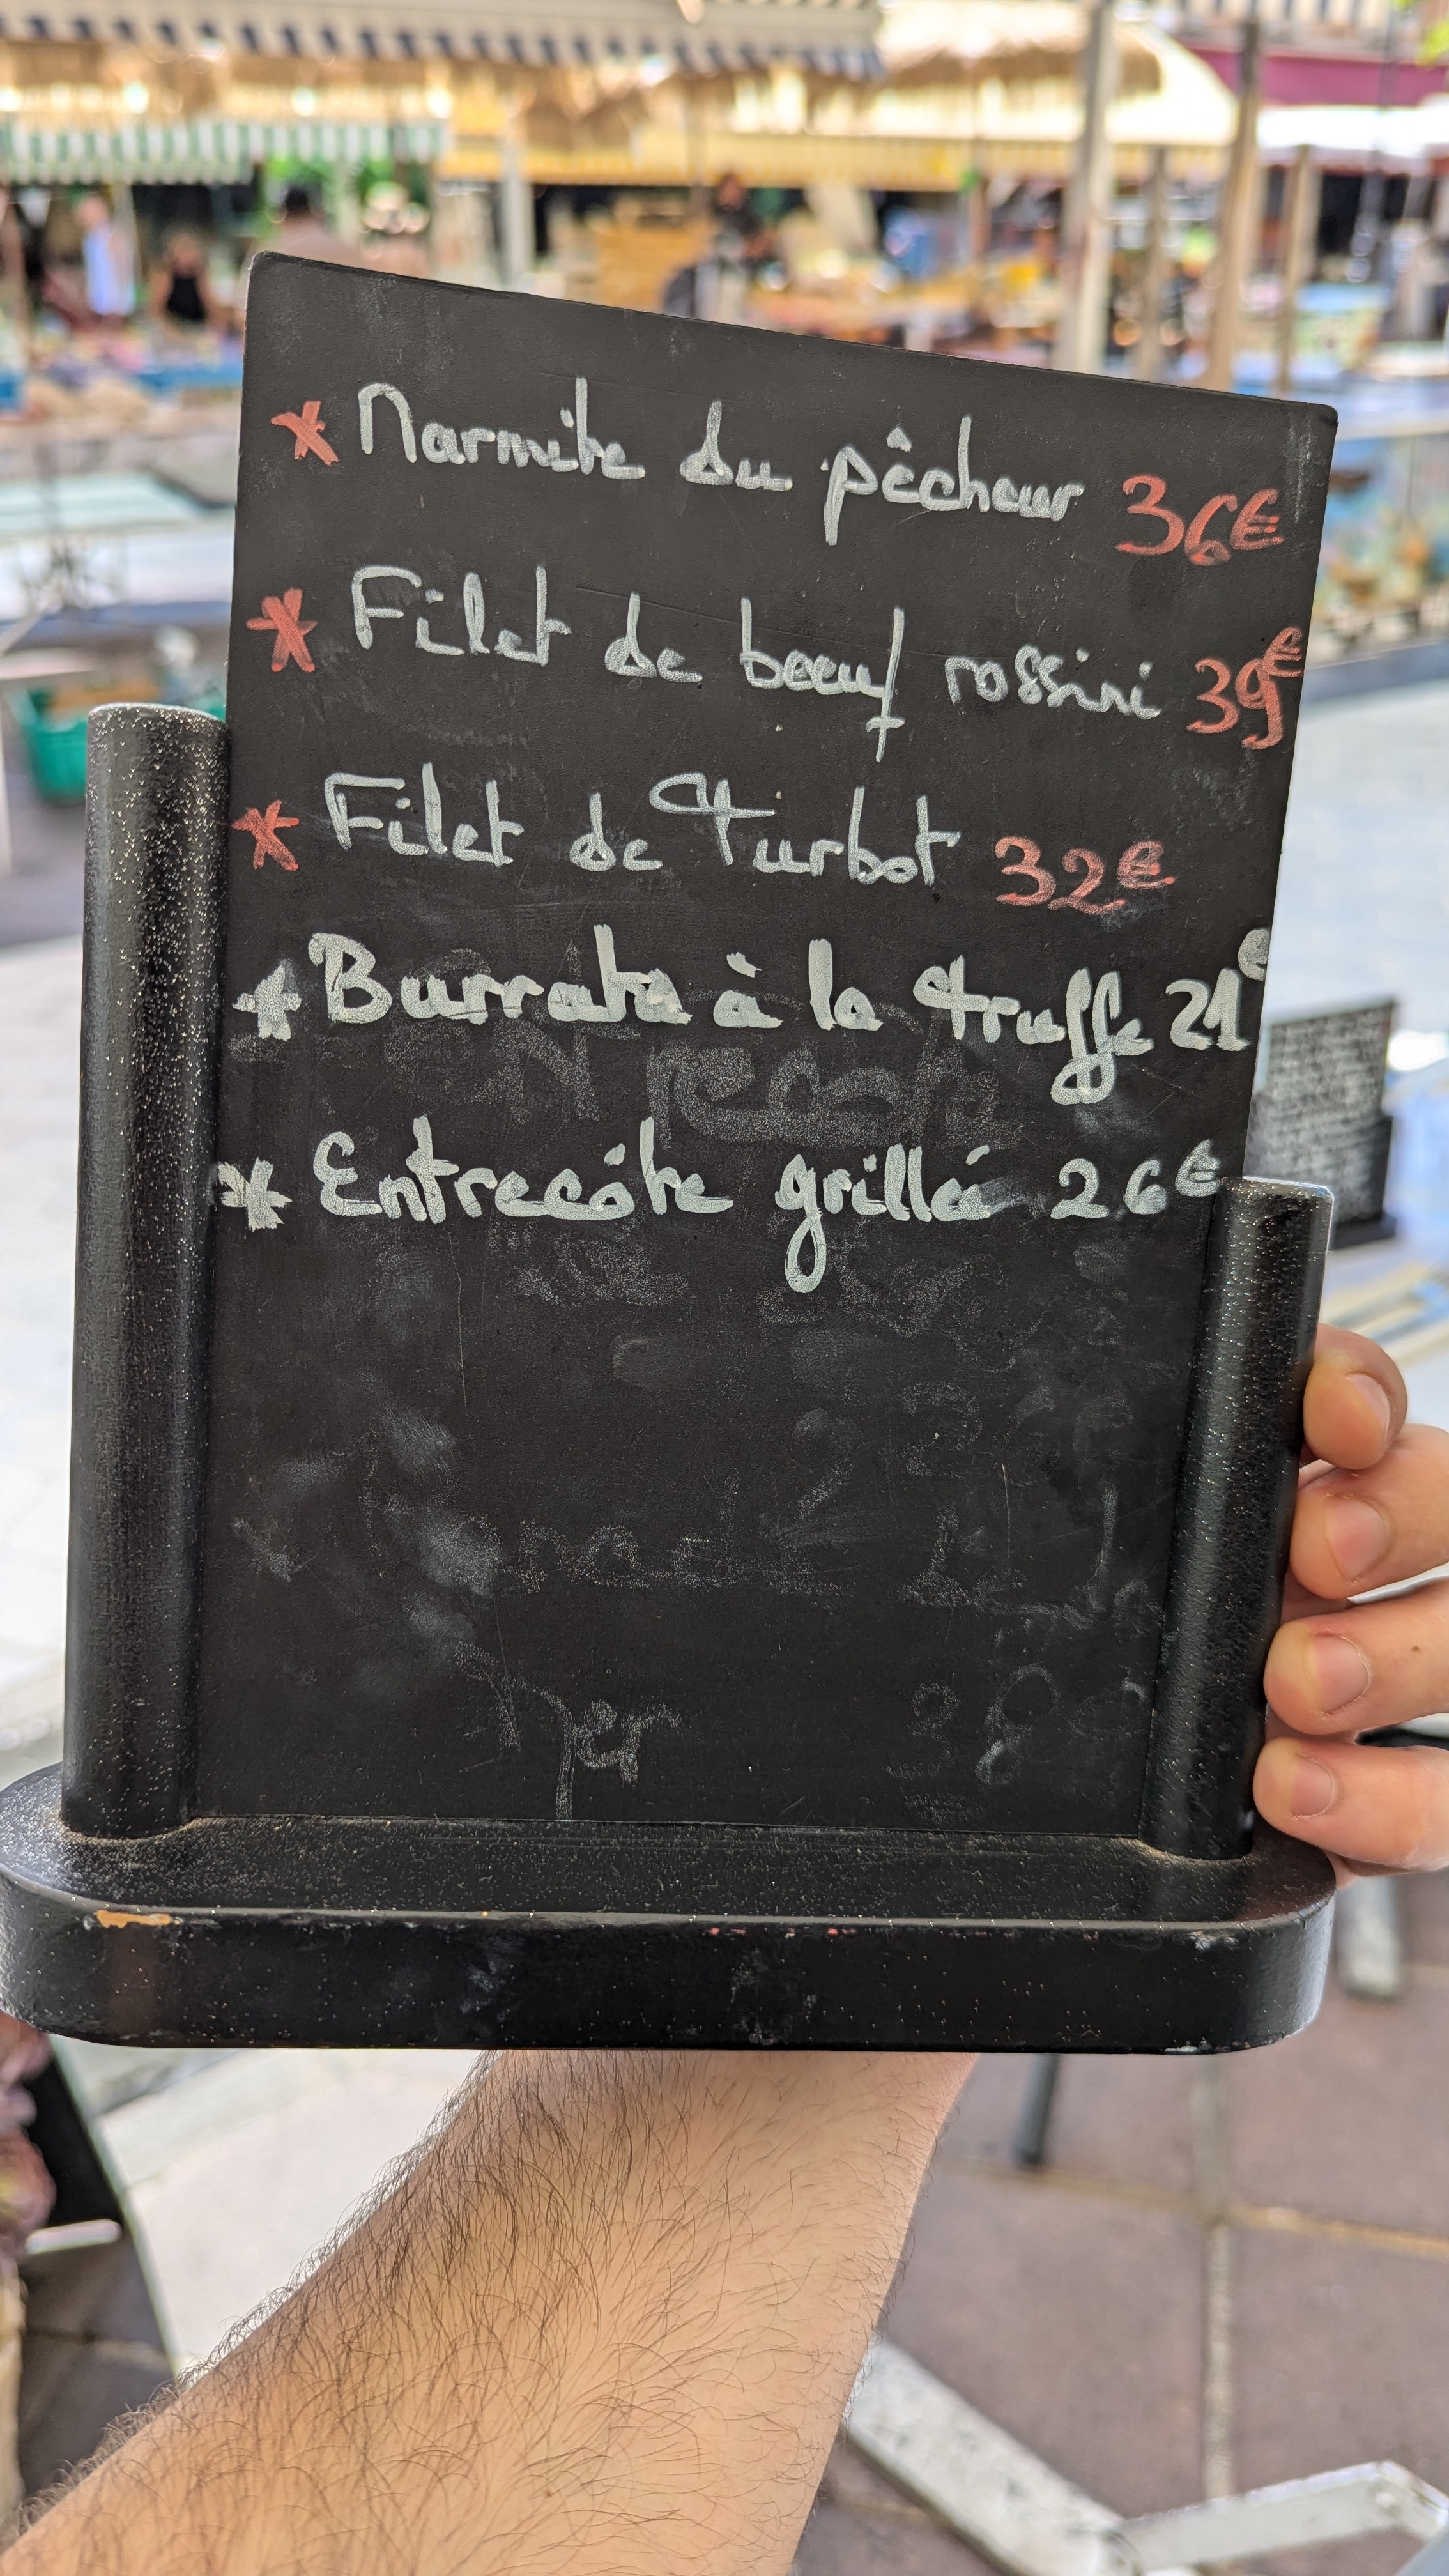 * Marmite du pêcheur 36€
* Filet de boeuf rossini 39€
* Filet de Turbot 32€
* Burrata à la truffe 21€
* Entrecôte grillé 26€